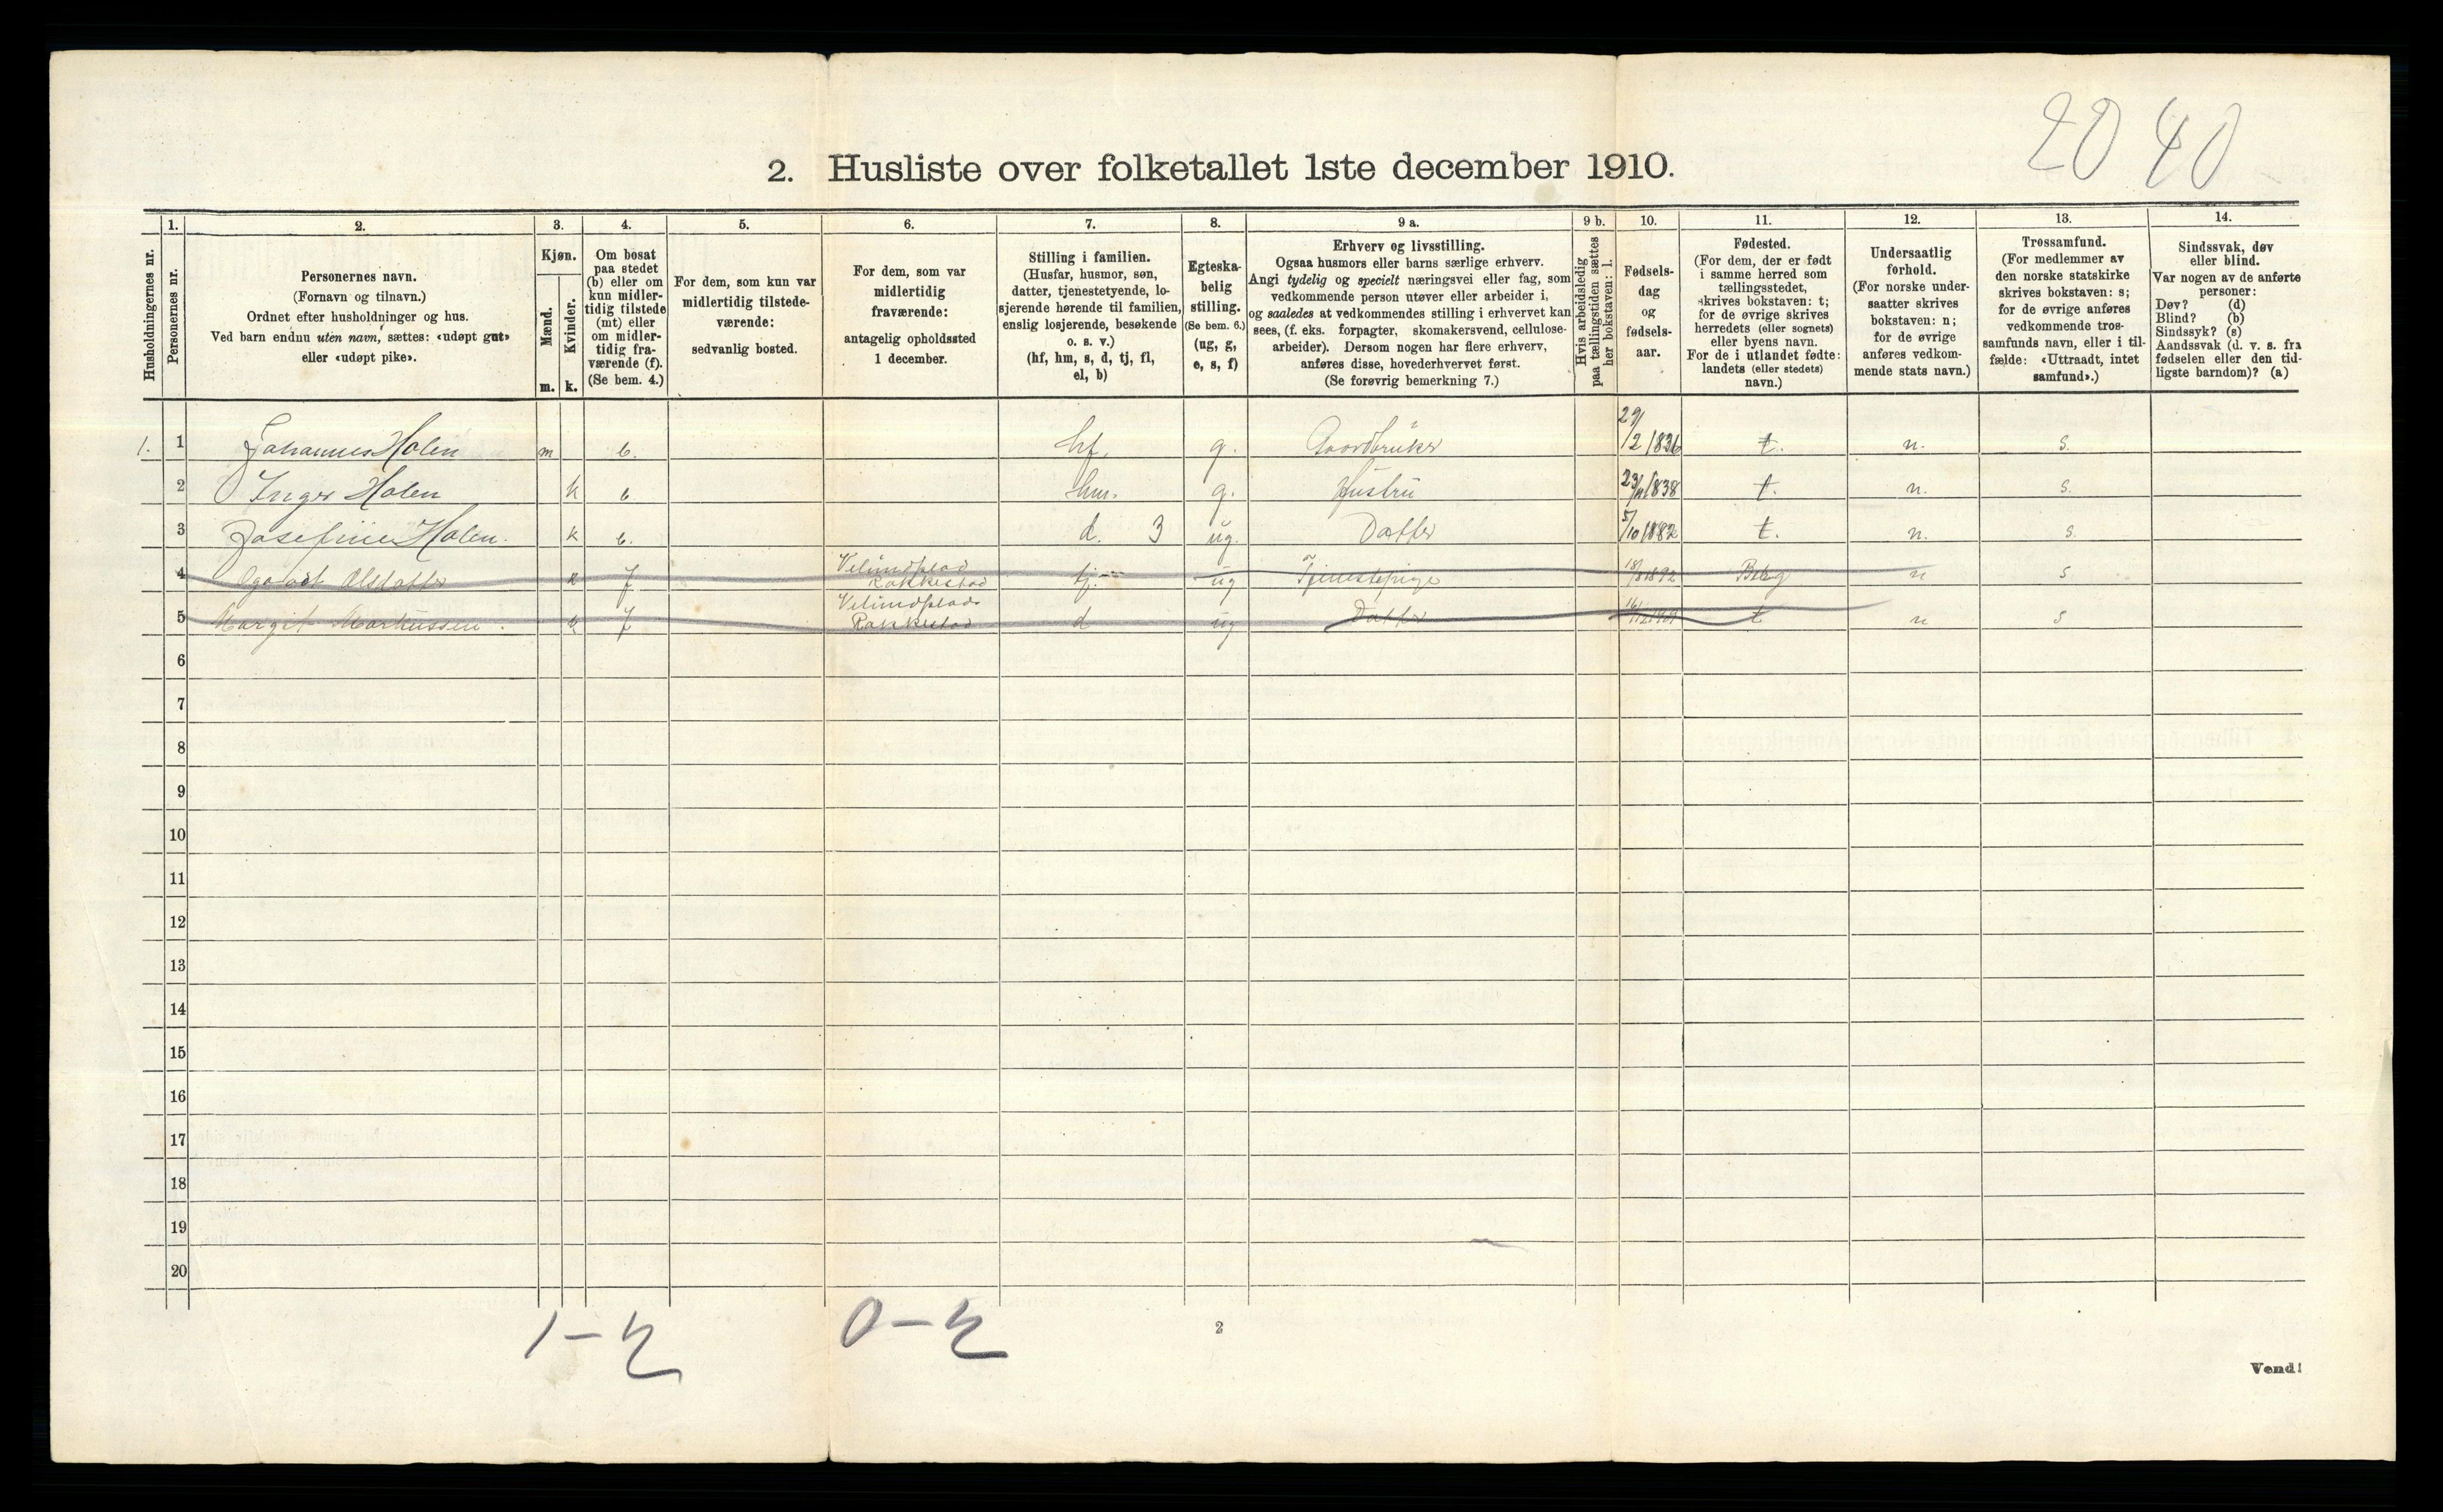 20 40
2. Husliste over folketallet 1ste december 1910.
Husholdningernes nr.
1.
Personernes nr.
2.
Personernes navn.
(Fornavn og tilnavn.)
Ordnet efter husholdninger og hus.
Ved barn endnu uten navn, sættes: «udøpt gut»
eller «udøpt pike».
3.
Kjøn.
Mænd.
Kvinder.
m. k.
4.
Om bosat
paa stedet
(b) eller om
kun midler-
tidig tilstede
(mt) eller
om midler-
tidig fra-
værende (f).
(Se bem. 4.)
5.
For dem, som kun var
midlertidig tilstede-
værende:
sedvanlig bosted.
6.
For dem, som var
midlertidig
fraværende:
antagelig opholdssted
1 december.
7.
Stilling i familien.
(Husfar, husmor, søn,
datter, tjenestetyende, lo-
sjerende hørende til familien,
enslig losjerende, besøkende
o. s. v.)
(hf, hm, s, d, tj, fl,
el, b)
8.
Egteska-
belig
stilling.
(Se bem. 6.)
(ug, g,
e, s, f)
9 a.
Erhverv og livsstilling.
Ogsaa husmors eller barns særlige erhverv.
Angi tydelig og specielt næringsvei eller fag, som
vedkommende person utøver eller arbeider i,
og saaledes at vedkommendes stilling i erhvervet kan
sees, (f. eks. forpagter, skomakersvend, cellulose-
arbeider). Dersom nogen har flere erhverv,
anføres disse, hovederhvervet først.
(Se forøvrig bemerkning 7.)
9 b.
Hvis arbeidsledig
paa tællingstiden sættes
her bokstaven: l.
10.
Fødsels-
dag
og
fødsels-
aar.
11.
Fødested.
(For dem, der er født
i samme herred som
tællingsstedet,
skrives bokstaven: t;
for de øvrige skrives
herredets (eller sognets)
eller byens navn.
For de i utlandet fødte:
landets (eller stedets)
navn.)
12.
Undersaatlig
forhold.
(For norske under-
saatter skrives
bokstaven: n;
for de øvrige
anføres vedkom-
mende stats navn.)
13.
Trossamfund.
(For medlemmer av
den norske statskirke
skrives bokstaven: s;
for de øvrige anføres
vedkommende tros-
samfunds navn, eller i til-
fælde: «Uttraadt, intet
samfund».)
14.
Sindssvak, døv
eller blind.
Var nogen av de anførte
personer:
Døv? (d)
Blind? (b)
Sindssyk? (s)
Aandssvak (d. v. s. fra
fødselen eller den tid-
ligste barndom)? (a)
1. 1 Johannes Holen m b. hf. g. Gaardbruker 29/2 1836 t. n. s.
2 Inger Holen k b hm. g. Hustru 1838 t. n. s.
3 Josefine Holen. k b. d. 3 ug. Datter 5/10 1882 t. n. s.
4 Olsdatter k f Rakkestad tj. ug Tjenestepige 1892 Berg n s
5 Margit Markussen. k f Rakkestad d ug Datter t n s
6
7
8
9
10
11
12
13
14
15
16
17
18
19
20
1-2 0-2
2
Vend!